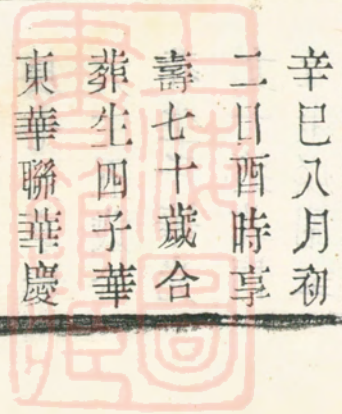 辛巳八月初
二日酉時享
壽七十歲合
葬生四子華
東華聯華慶
上海圖書館藏